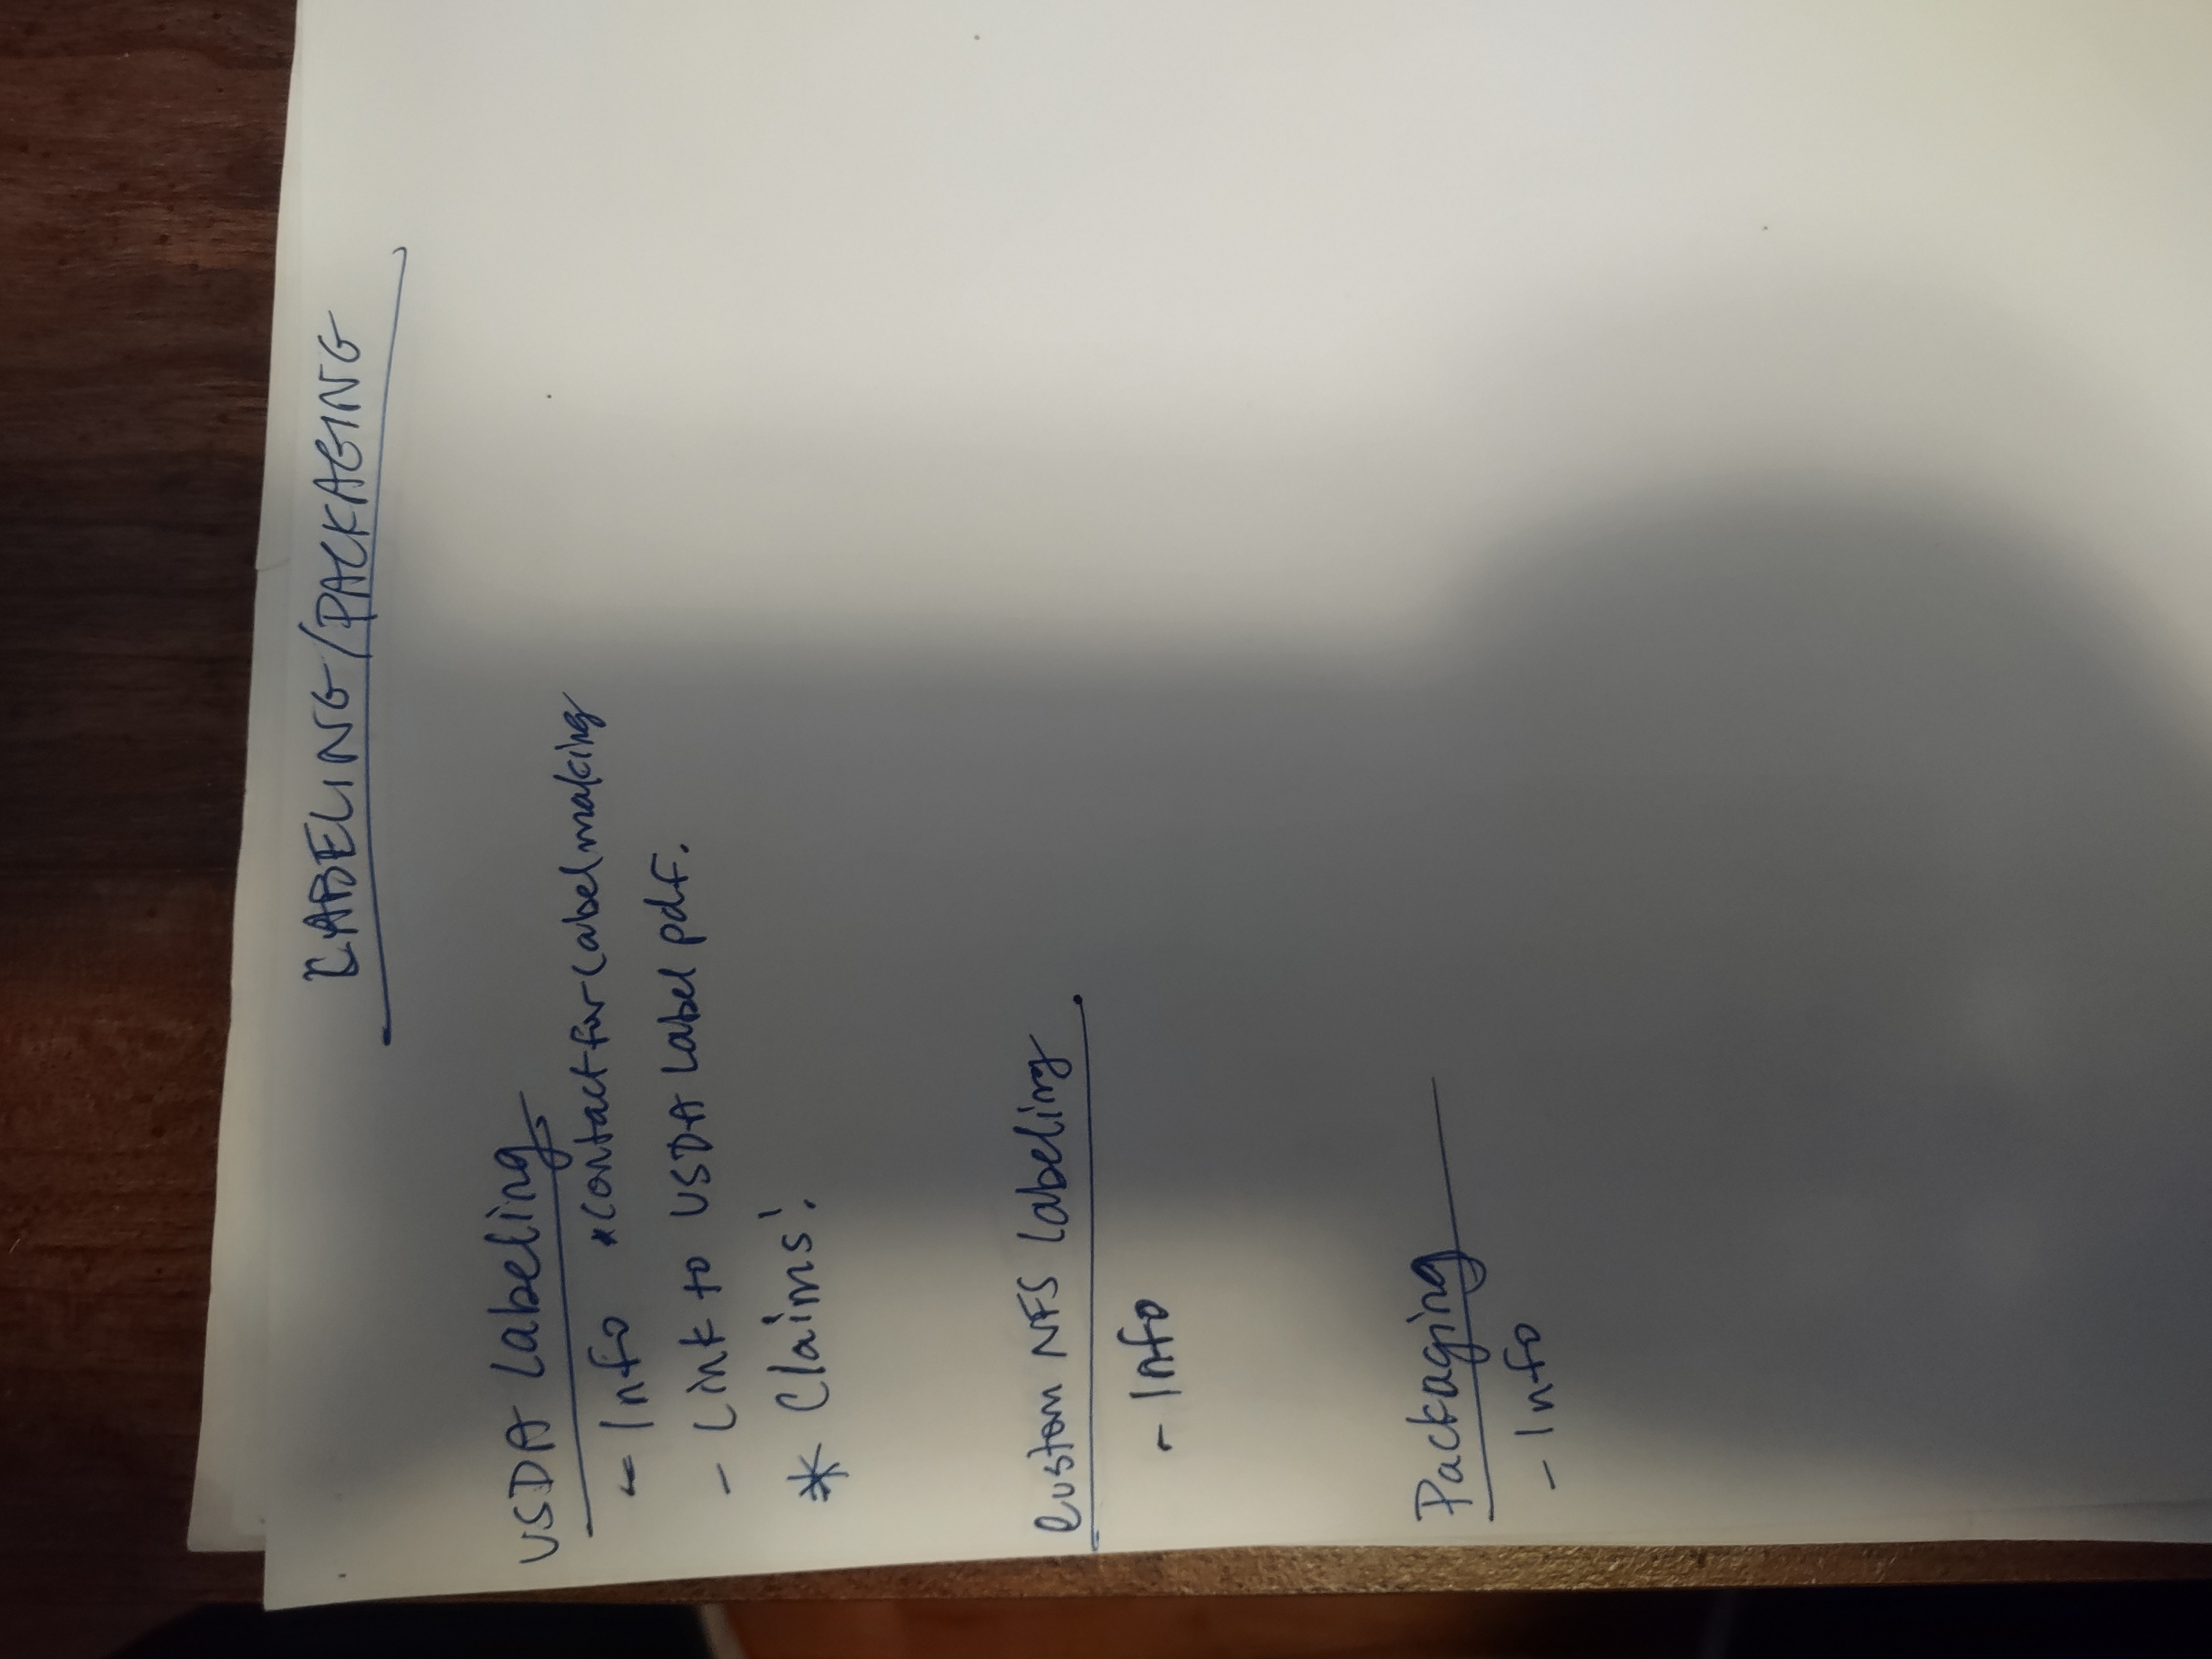 LABELING/PACKAGING
USDA Labeling
- Info *Contact for Label making
- Link to USDA Label pdf.
* Claims!
Custom NFS Labeling
- Info
Packaging
- Info